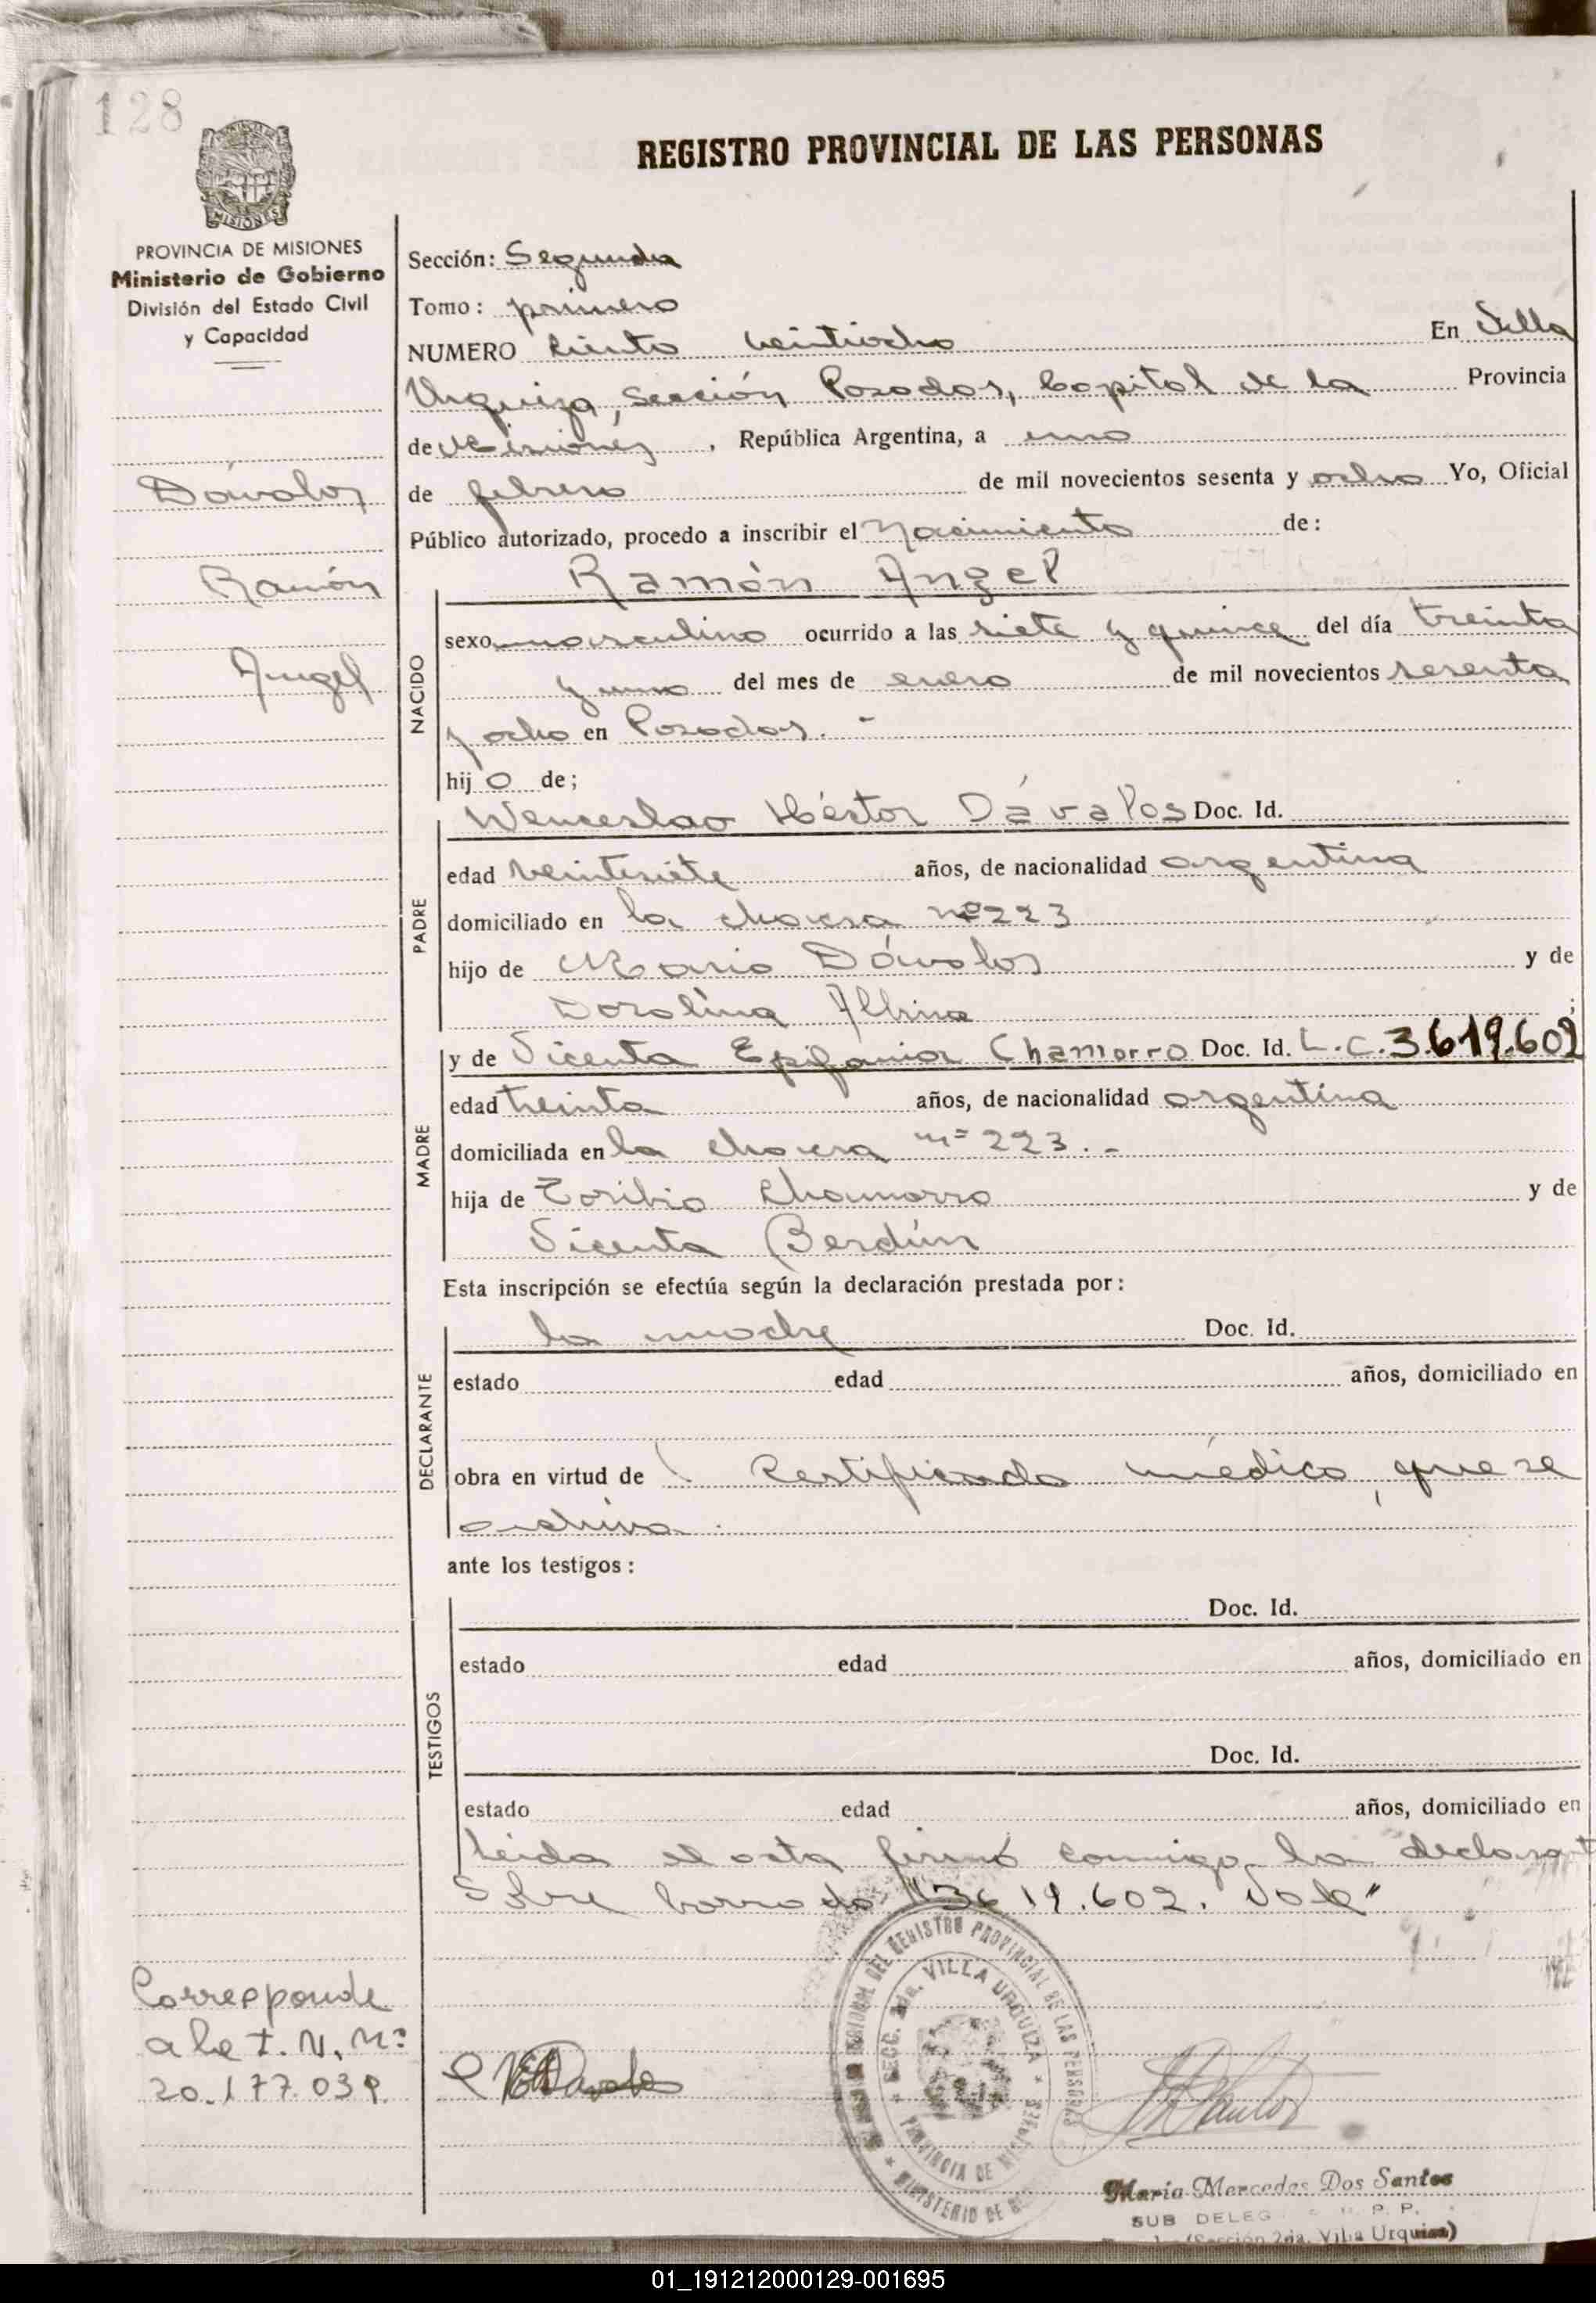 128
REGISTRO PROVINCIAL DE LAS PERSONAS
MISIONES
PROVINCIA DE MISIONES
Ministerio de Gobierno
División del Estado Civil
y Capacidad
Dávalos
Ramón
Angel
Sección: Segunda
Tomo: primero
NUMERO Ciento veintiocho En Villa
Urquiza, Sección Posadas, Capital de la Provincia
de Misiones, República Argentina, a uno
de febrero de mil novecientos sesenta y ocho Yo, Oficial
Público autorizado, procedo a inscribir el Nacimiento de:
NACIDO
Ramón Angel
sexo masculino ocurrido a las siete y quince del día treinta
y uno del mes de enero de mil novecientos sesenta
y ocho en Posadas. -
hijo de;
PADRE
Wenceslao Héctor Dávalos Doc. Id.
edad veintisiete años, de nacionalidad argentina
domiciliado en la chacra nº 223
hijo de Mario Dávalos y de
Dorolina ;
MADRE
y de Vicenta Epifania Chamorro Doc. Id. L.C. 3.619.602
edad treinta años, de nacionalidad argentina
domiciliada en la chacra nº 223. -
hija de Toribio Chamorro y de
Vicenta Berdún
Esta inscripción se efectúa según la declaración prestada por:
DECLARANTE
la madre Doc. Id.
estado edad años, domiciliado en
obra en virtud de Certificado médico, que se
archiva.
ante los testigos:
TESTIGOS
Doc. Id.
estado edad años, domiciliado en
Doc. Id.
estado edad años, domiciliado en
Leida el acta firmó conmigo la declarant
Sobre borrado: "3619.602. Vale"
Corresponde
a la T. N. Nº
20.177.039
REGISTRO PROVINCIAL DE LAS PERSONAS
SECC. 2da. VILLA URQUIZA
PROVINCIA DE MISIONES
MINISTERIO DE
María Mercedes Dos Santos
SUB DELEG P. P.
(Sección 2da. Villa Urquiza)
01_191212000129-001695